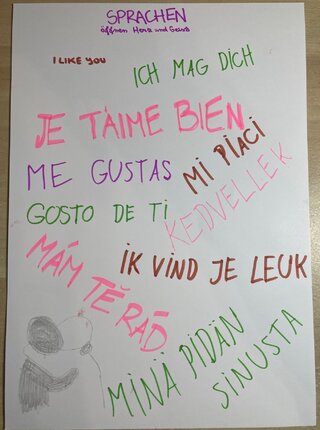 SPRACHEN
öffnen Herz und Geist
I LIKE YOU
ICH MAG DICH
JE T'AIME BIEN
ME GUSTAS
MI PIACI
GOSTO DE TI
KEDVELLEK
MÁM TĚ RÁD
IK VIND JE LEUK
MINÄ PIDÄN
SINUSTA